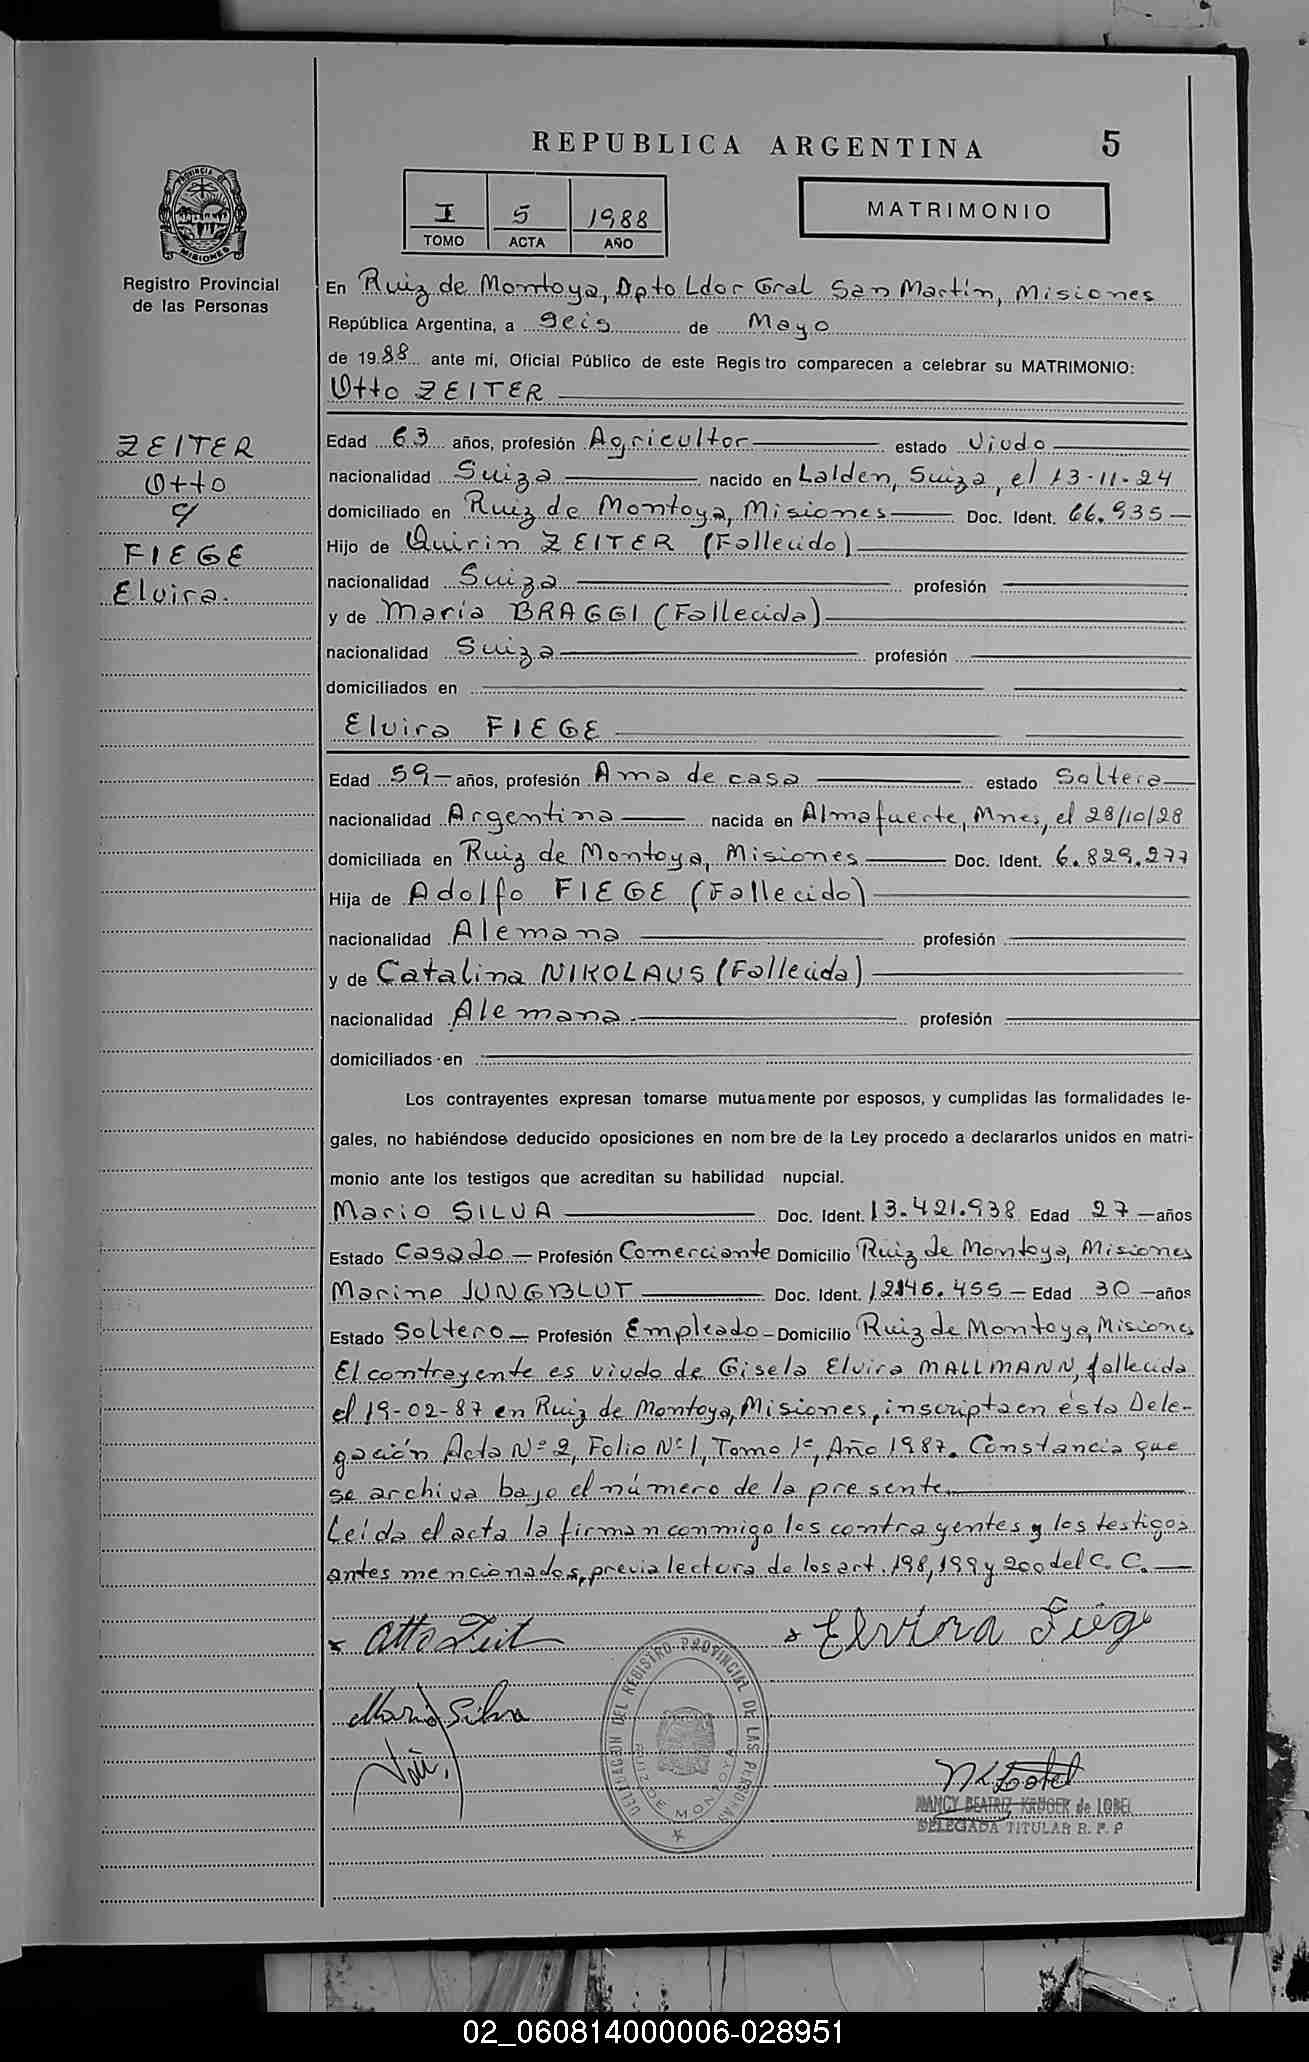 REPUBLICA ARGENTINA
5
I 5 1988
TOMO ACTA AÑO
MATRIMONIO
PROVINCIA DE MISIONES
Registro Provincial
de las Personas
ZEITER
Otto
y
FIEGE
Elvira.
En Ruiz de Montoya, Dpto Ldor Gral San Martín, Misiones
República Argentina, a seis de Mayo
de 1988 ante mí, Oficial Público de este Registro comparecen a celebrar su MATRIMONIO:
Otto ZEITER
Edad 63 años, profesión Agricultor estado Viudo
nacionalidad Suiza nacido en Lalden, Suiza, el 13-11-24
domiciliado en Ruiz de Montoya, Misiones Doc. Ident. 66.935
Hijo de Quirin ZEITER (Fallecido)
nacionalidad Suiza profesión
y de María BRAGGI (Fallecida)
nacionalidad Suiza profesión
domiciliados en
Elvira FIEGE
Edad 59 años, profesión Ama de casa estado Soltera
nacionalidad Argentina nacida en Almafuerte, Mnes, el 28/10/28
domiciliada en Ruiz de Montoya, Misiones Doc. Ident. 6.829.277
Hija de Adolfo FIEGE (Fallecido)
nacionalidad Alemana profesión
y de Catalina NIKOLAUS (Fallecida)
nacionalidad Alemana. profesión
domiciliados en
Los contrayentes expresan tomarse mutuamente por esposos, y cumplidas las formalidades le-
gales, no habiéndose deducido oposiciones en nombre de la Ley procedo a declararlos unidos en matri-
monio ante los testigos que acreditan su habilidad nupcial.
Mario SILVA Doc. Ident. 13.421.938 Edad 27 años
Estado Casado Profesión Comerciante Domicilio Ruiz de Montoya, Misiones
Marino JUNGBLUT Doc. Ident. Edad 30 años
Estado Soltero Profesión Empleado Domicilio Ruiz de Montoya, Misiones
El contrayente es viudo de Gisela Elvira MALLMANN, fallecida
el 19-02-87 en Ruiz de Montoya, Misiones, inscripta en ésta Dele-
gación Acta Nº 2, Folio Nº 1, Tomo 1º, Año 1987. Constancia que
se archiva bajo el número de la presente.
Leída el acta la firman conmigo los contrayentes y los testigos
antes mencionados, previa lectura de los art. 198, 199 y 200 del C. C.
x Otto Zeit x Elvira Fieg
Mario Silva
DELEGACION DEL REGISTRO PROVINCIAL DE LAS PERSONAS
RUIZ DE MONTOYA
NANCY BEATRIZ KRÜGER de LOBEL
DELEGADA TITULAR R. P. P
02_060814000006-028951